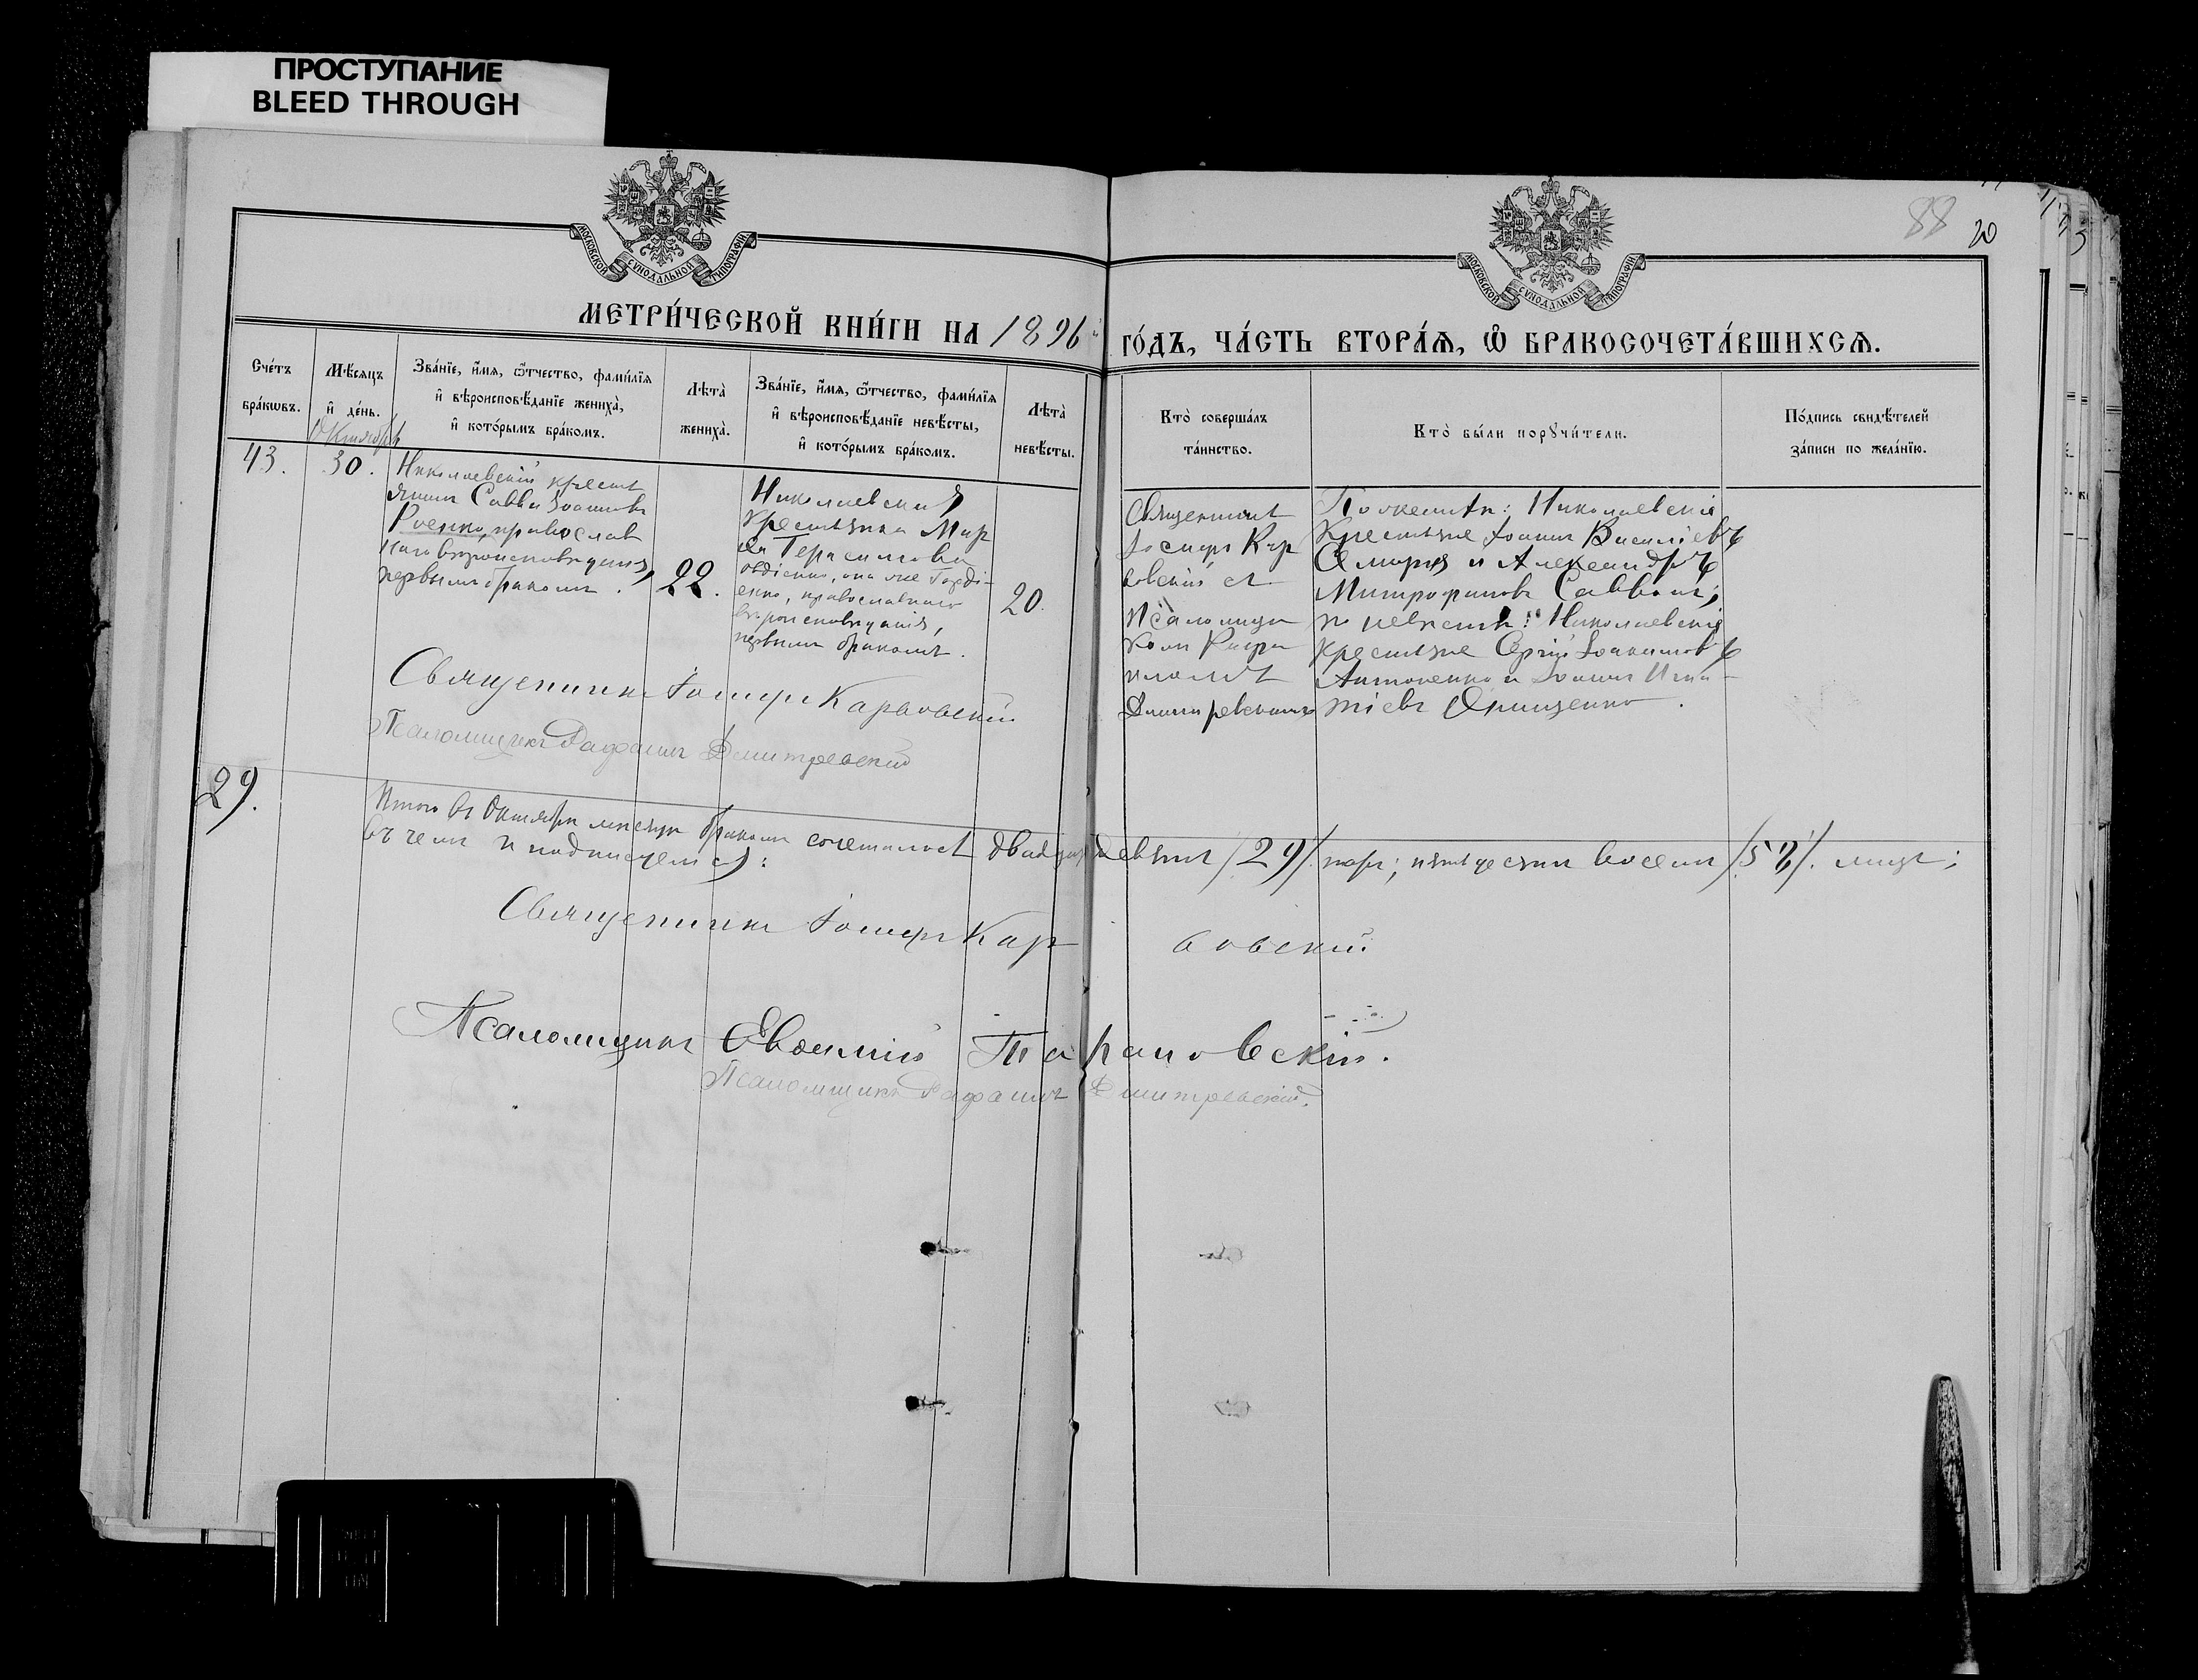 ПРОСТУПАНИЕ
BLEED THROUGH
МОСКОВСКОЙ СУНОДАЛЬНОЙ ТИПОГРАФІИ
МОСКОВСКОЙ СУНОДАЛЬНОЙ ТИПОГРАФІИ
88 20
МЕТРИ́ЧЕСКОЙ КНИ́ГИ НА 1896
ГО́ДЪ, ЧА́СТЬ ВТОРА́Я, Ѿ БРАКОСОЧЕТА́ВШИХСЯ.
Сче́тъ
бра́кѡвъ.
Мѣ́сяцъ
и҆ де́нь.
Октябрь
Зва́нїе, и҆́мя, ѻ҆́тчество, фами́лїя
и҆ вѣроисповѣ́данїе жениха̀,
и҆ кото́рымъ бра́комъ.
Лѣта̀
жениха̀.
Зва́нїе, и҆́мя, ѻ҆́тчество, фами́лїя
и҆ вѣроисповѣ́данїе невѣ́сты,
и҆ кото́рымъ бра́комъ.
Лѣта̀
невѣ́сты.
Кто̀ соверша́лъ
та́инство.
Кто̀ бы́ли порꙋчи́тели.
По́дпись свидѣ́телей
за́писи по жела́нїю.
43.
30.
Николаевскій крестъ
янинъ Савва Іоанновъ
Роенко, православ
наго вѣроисповѣданія,
первымъ бракомъ.
22.
Николаевская
крестьянка Мар
ѳа Герасимова
Овдіенко, она же Горді-
енко, православнаго
вѣроисповѣданія,
первымъ бракомъ.
20.
Священникъ
Іосифъ Кар
овскій съ
псаломщи
комъ Рафа
иломъ
Дмитревскимъ
По женихѣ: Николаевскіе
крестьяне Іоаннъ Василіевъ
и Александръ
Митрофановъ
по невѣстѣ: Николаевскіе
крестьяне Сергій Іоакимовъ
Антоненко и Іоаннъ Игна-
тіевъ Онищенко.
Священникъ Іосифъ Карвовскій
Псаломщикъ Рафаилъ Дмитревскій
29.
Итого въ Октябрѣ мѣсяцѣ бракомъ сочеталось двадцать девять /29/ паръ; пятьдесятъ восемь /58/ лицъ;
въ чемъ и подписуемся:
Священникъ Іосифъ Карвовскій
Псаломщикъ Евѳимій Тарановскій.
Псаломщикъ Рафаилъ Дмитревскій.